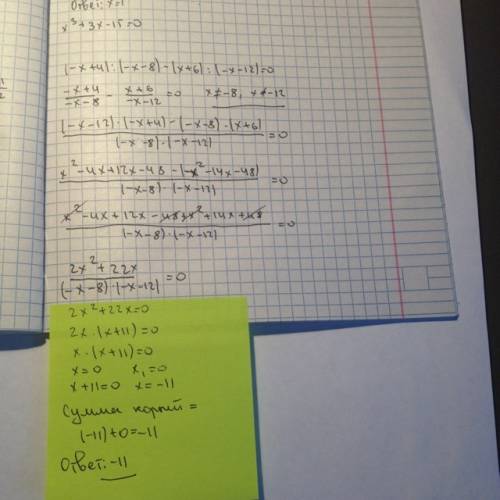 Ответ: x=1
x³+3x-15=0
(-x+4):(-x-8)-(x+6):(-x-12)=0
(-x+4)/(-x-8) (x+6)/(-x-12) =0 x≠-8, x≠-12
((-x-12)·(-x+4)-(-x-8)·(x+6))/((-x-8)·(-x-12)) =0
(x²-4x+12x-48-(-x²-14x-48))/((-x-8)·(-x-12)) =0
(x²-4x+12x-48+x²+14x+48)/((-x-8)·(-x-12)) =0
(2x²+22x)/((-x-8)·(-x-12)) =0
2x²+22x=0
2x·(x+11)=0
x·(x+11)=0
x=0 x₁=0
x+11=0 x=-11
Сумма корней =
(-11)+0=-11
Ответ: -11